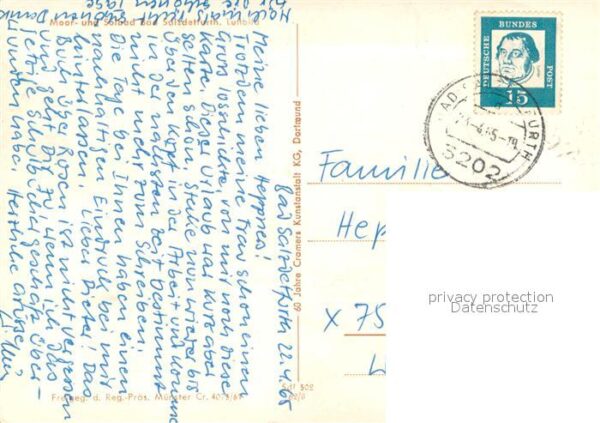 Moor- und Solbad Bad Salzdetfurth, Luftbild
Bad Salzdetfurth 22.4.65
Meine lieben Heppners!
Trotzdem meine Frau schon einen
Gruss losschickte, von mir noch diese
Karte. Dieser Urlaub war kurz aber
selten schön. Stecke nun wieder bis
über den Kopf in der Arbeit und komme
in der nächsten Zeit bestimmt
nicht mehr zum Schreiben.
Die Tage bei Ihnen haben einen
nachhaltigen Eindruck bei mir
hinterlassen. Lieber Dieter! Das
Buch über Rosen ist nicht vergessen
und geht Dir zu wenn ich das
jetzige Schreib geschäft über-
habe. Herzliche Grüsse
Nochmals schönen Dank
für die schönen Tage
60 Jahre Cramers Kunstanstalt KG, Dortmund
Sdf 502
62/8
Freigeg. d. Reg.-Präs. Münster Cr.
DEUTSCHE
BUNDES
POST
15
3202
Familie
Hep
X 75
privacy protection
Datenschutz